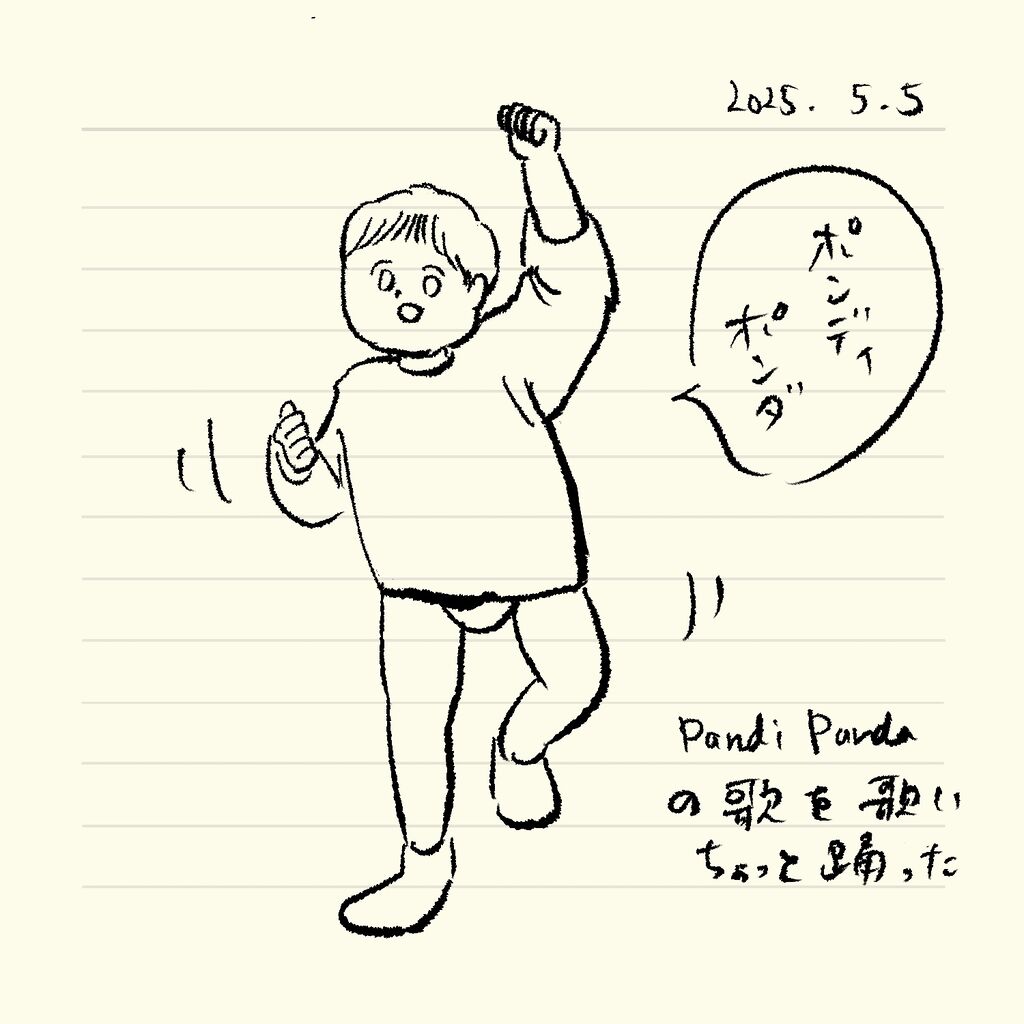 2025. 5.5
ポンディ
ポンダ
Pandi Panda
の歌を歌い
ちょっと踊った